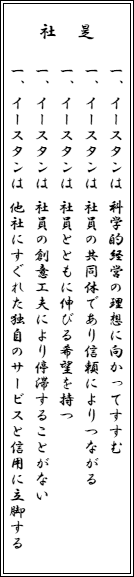 社是
一、イースタンは 科学的経営の理想に向かってすすむ
一、イースタンは 社員の共同体であり信頼によりつながる
一、イースタンは 社員とともに伸びる希望を持つ
一、イースタンは 社員の創意工夫により停滞することがない
一、イースタンは 他社にすぐれた独自のサービスと信用に立脚する